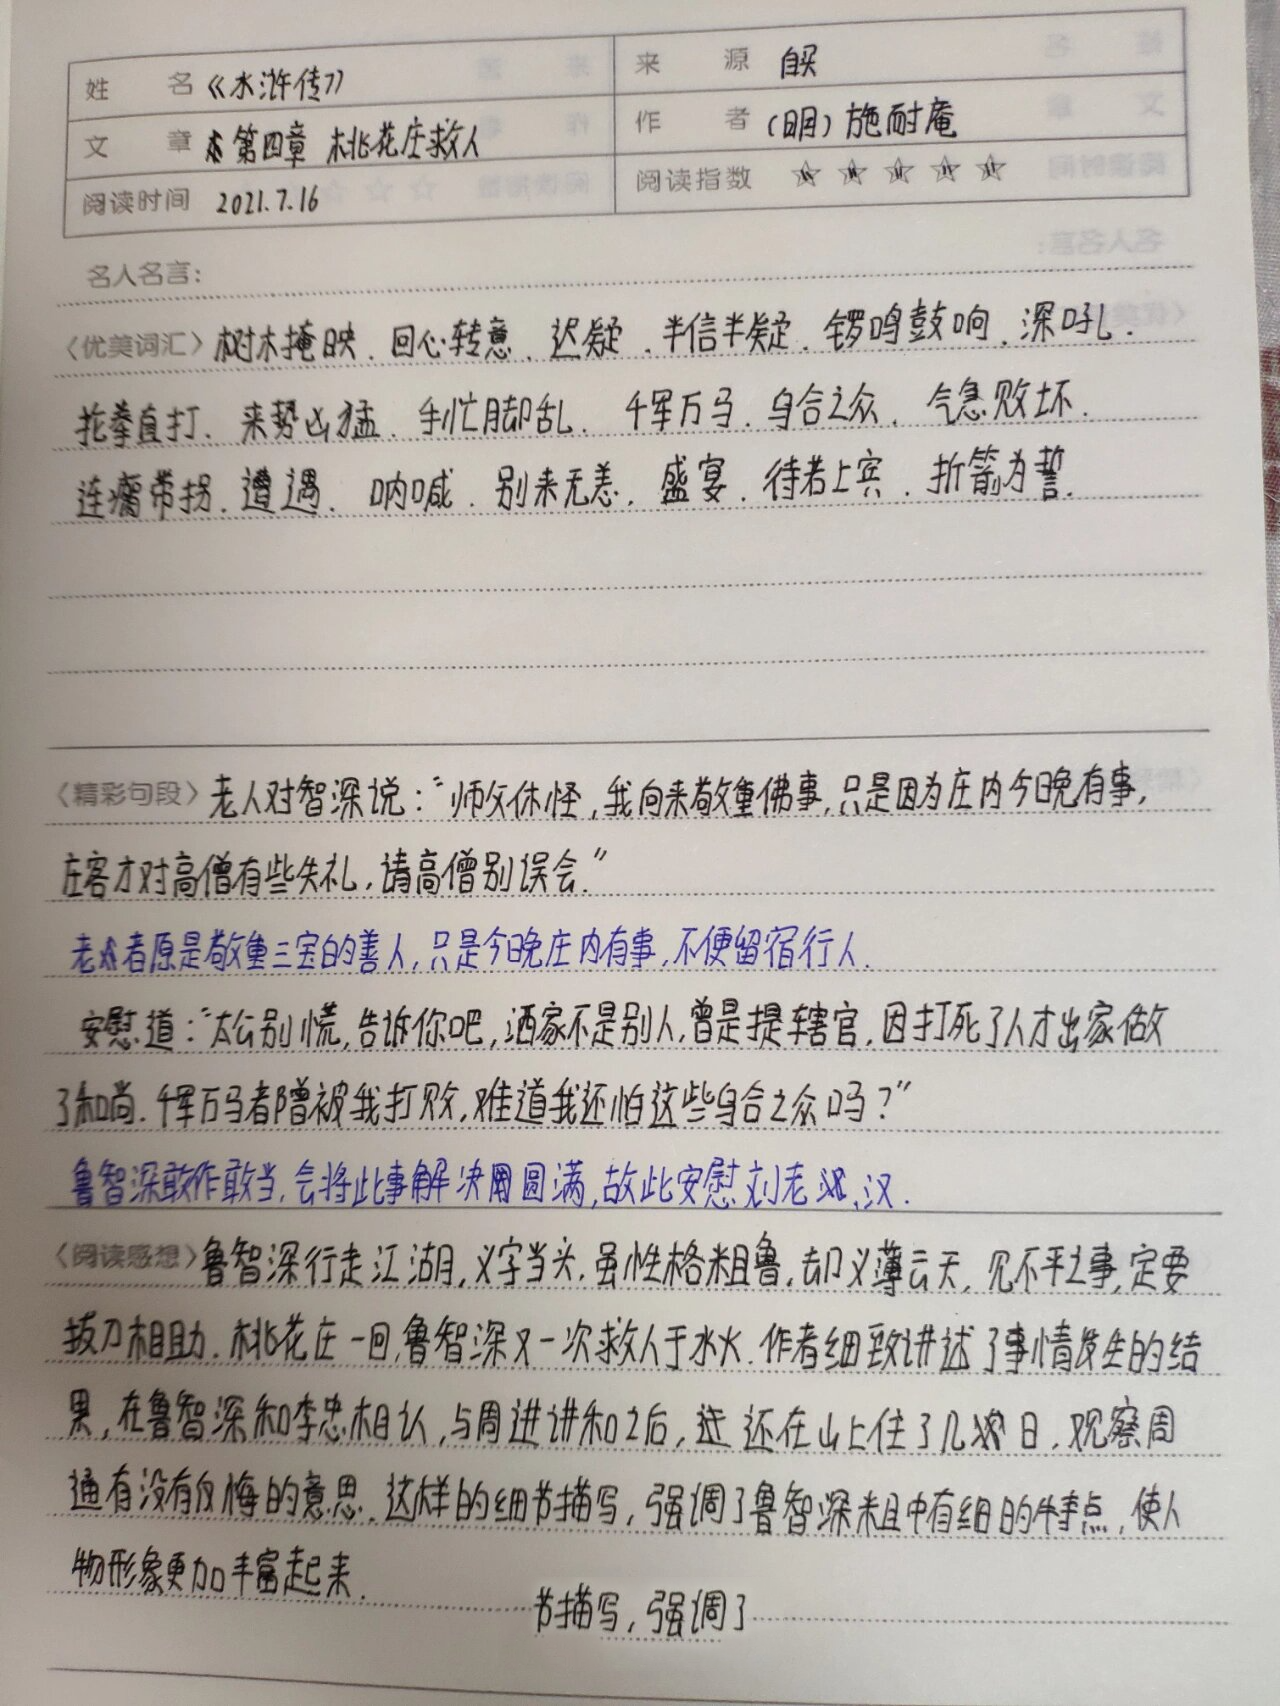 姓 名 《水浒传》 来 源 自买
文 章 第四章 桃花庄救人 作 者 (明)施耐庵
阅读时间 2021.7.16 阅读指数 ☆☆☆☆☆
名人名言:
〈优美词汇〉树木掩映、回心转意、迟疑、半信半疑、锣鸣鼓响、深吼、
抡拳直打、来势凶猛、手忙脚乱、千军万马、乌合之众、气急败坏、
连瘸带拐、遭遇、呐喊、别来无恙、盛宴、待若上宾、折箭为誓.
〈精彩句段〉老人对智深说:“师父休怪,我向来敬重佛事,只是因为庄内今晚有事,
庄客才对高僧有些失礼,请高僧别误会.”
老者原是敬重三宝的善人,只是今晚庄内有事,不便留宿行人.
安慰道:“太公别慌,告诉你吧,洒家不是别人,曾是提辖官,因打死了人才出家做
了和尚.千军万马都曾被我打败,难道我还怕这些乌合之众吗?”
鲁智深敢作敢当,会将此事解决圆满,故此安慰刘老汉.
〈阅读感想〉鲁智深行走江湖,义字当头.虽性格粗鲁,却义薄云天,见不平之事,定要
拔刀相助.桃花庄一回,鲁智深又一次救人于水火.作者细致讲述了事情发生的结
果,在鲁智深和李忠相认,与周进讲和之后,还在山上住了几日,观察周
通有没有反悔的意思.这样的细节描写,强调了鲁智深粗中有细的特点,使人
物形象更加丰富起来.
节描写,强调了